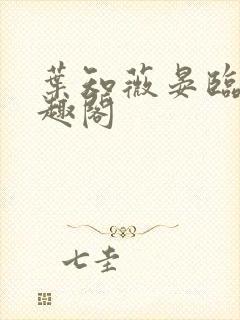 葉知薇晏臨
趣閣
七圭